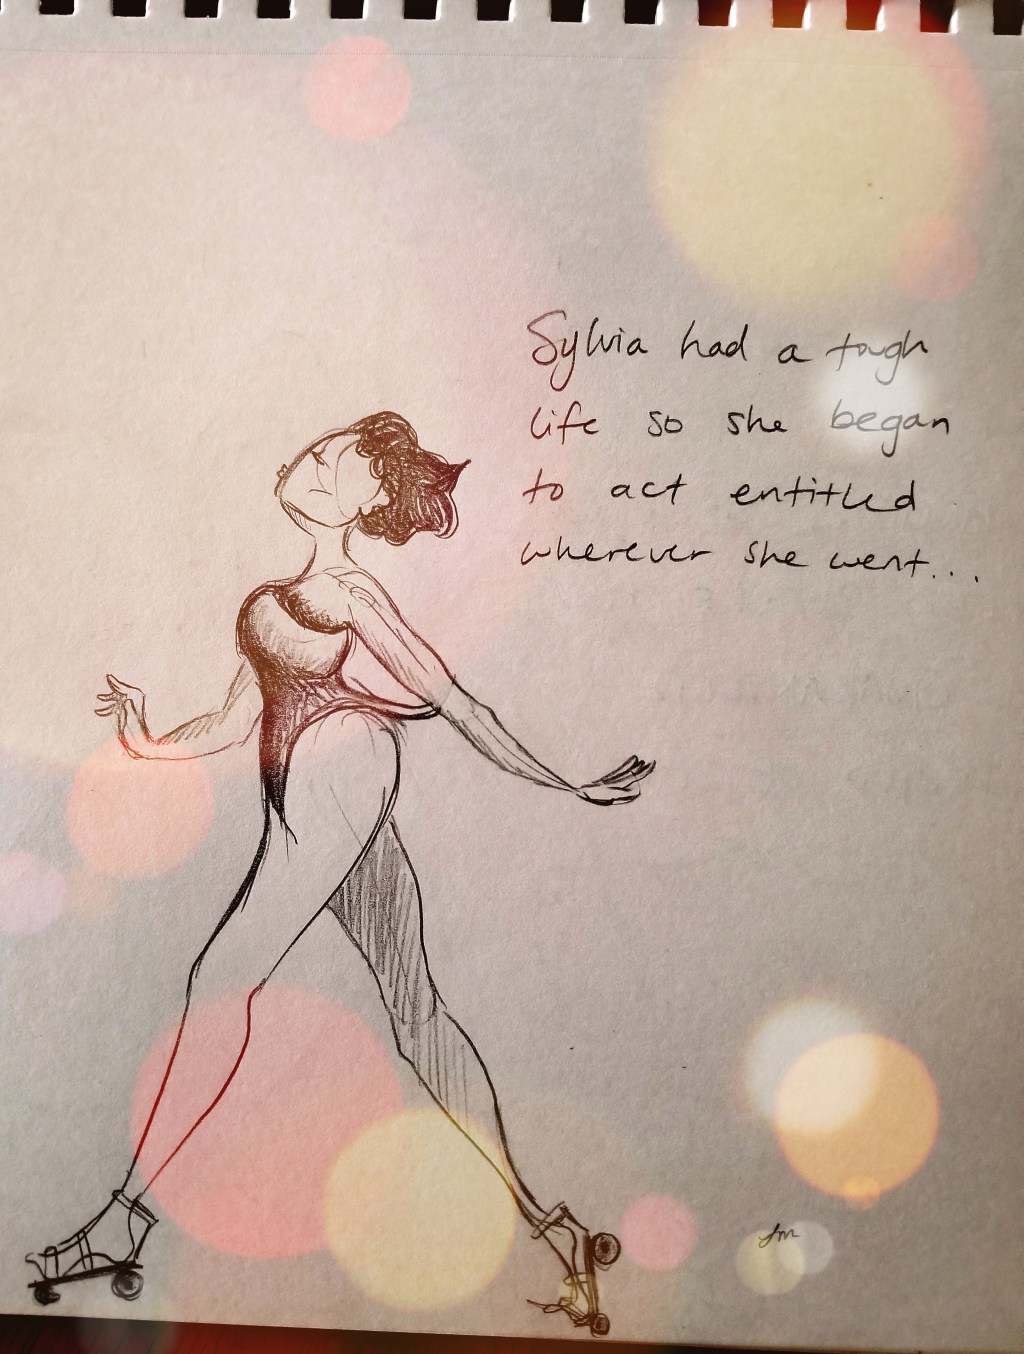 Sylvia had a tough
life so she began
to act entitled
wherever she went...